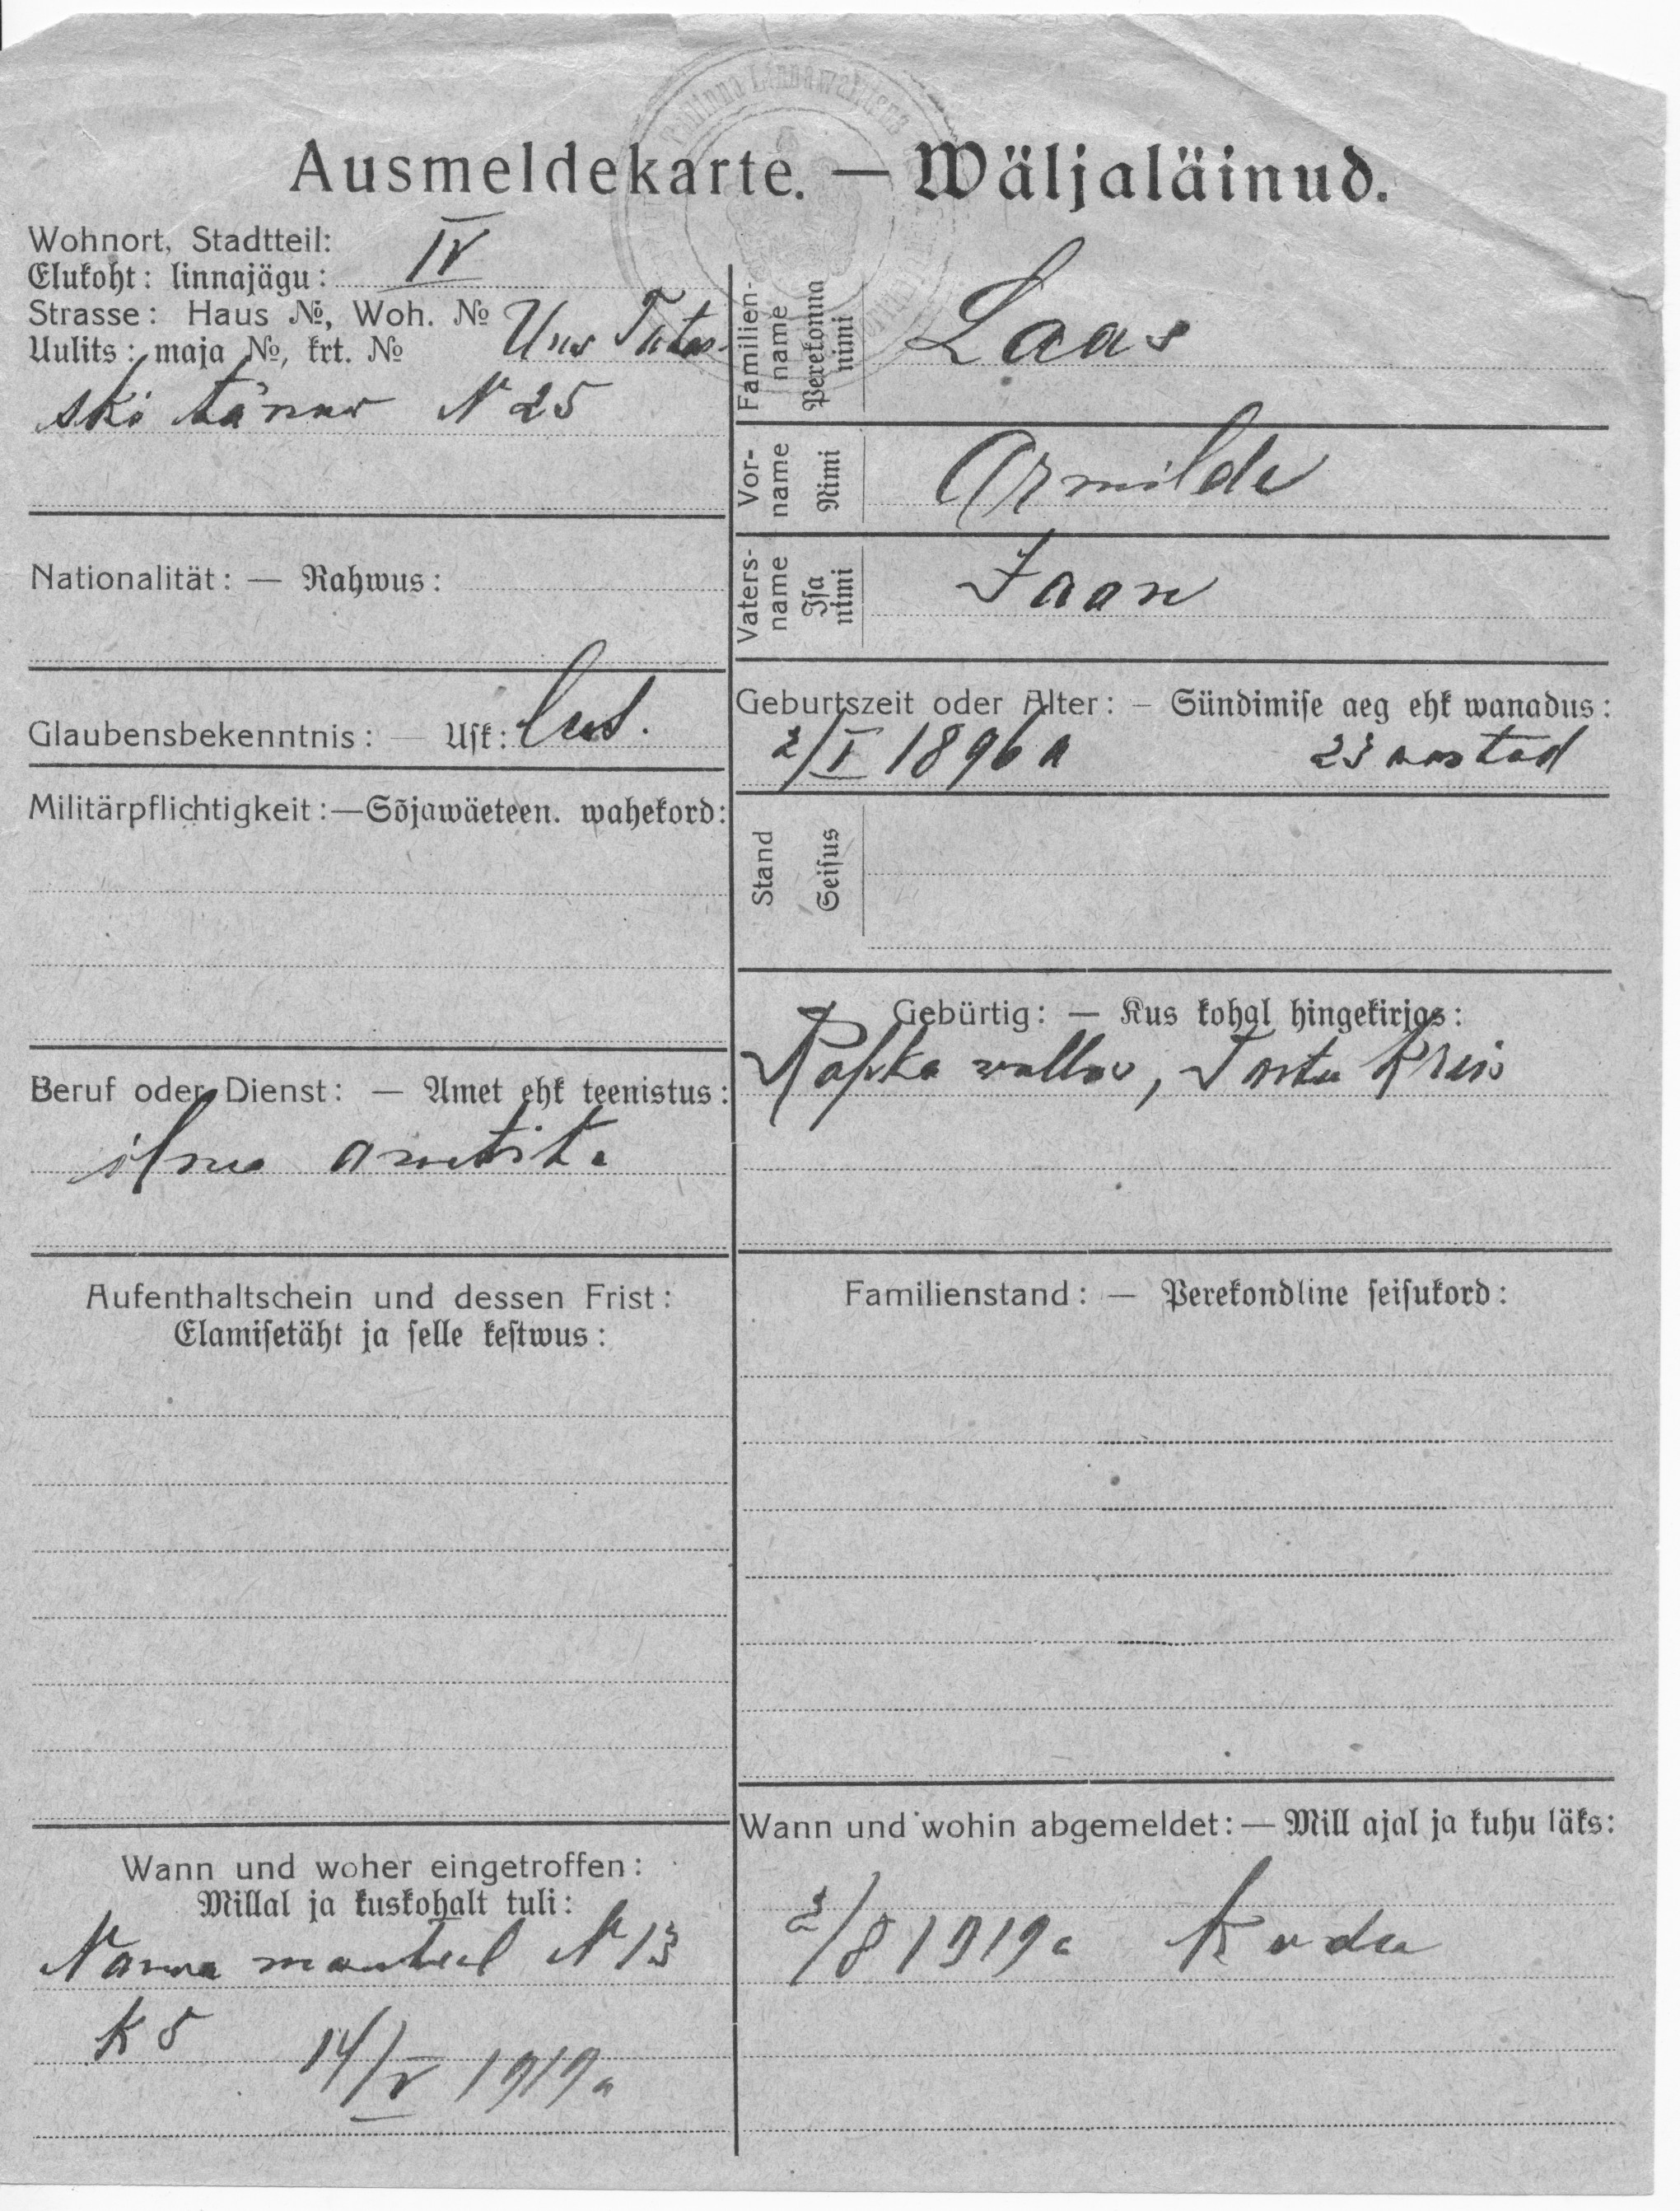 Tallinna Linnawalitsus
Ausmeldekarte. — Wäljaläinud.
Wohnort, Stadtteil:
Elukoht: linnajägu: IV
Strasse: Haus №, Woh. №
Uulits: maja №, krt. № Uus Tatar
ski tänaw N 25
Nationalität: — Rahwus:
Glaubensbekenntnis: — Usk: Lut.
Militärpflichtigkeit: — Sõjawäeteen. wahekord:
Beruf oder Dienst: — Amet ehk teenistus:
ilma ametita
Aufenthaltschein und dessen Frist:
Elamisetäht ja selle kestwus:
Wann und woher eingetroffen:
Millal ja kuskohalt tuli:
Narwa manteel N 13
K 5 14/V 1919 a
Familien-
name
Perekonna
nimi
Laas
Vor-
name
Nimi
Armilde
Vaters-
name
Isa
nimi
Jaan
Geburtszeit oder Alter: — Sündimise aeg ehk wanadus:
2/I 1896 a 23 aastad
Stand
Seisus
Gebürtig: — Kus kohal hingekirjas:
wallas, Tartu Kreis
Familienstand: — Perekondline seisukord:
Wann und wohin abgemeldet: — Mill ajal ja kuhu läks:
2/8 1919 a Kodu